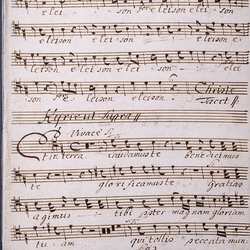 elei - son for elei - son e
eleison elei - son
elei - son eleison e
leison e lei son elei
son for eleison eleison. Christe
tacet
Kyrie ut supra
Vivace
Et in terra laudamus te benedicimus
te glorificamus te gratias
agimus tibi pater magnam gloriam
tuam qui tollis peccata mun